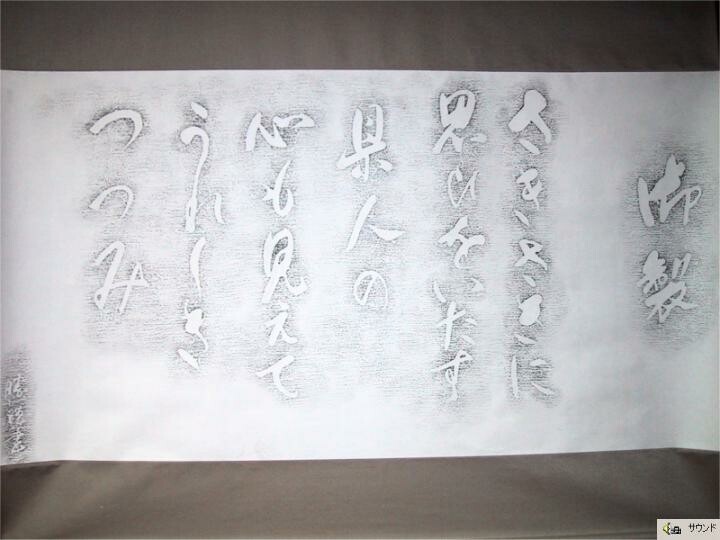 御製
さきさきに
思ひをいたす
県人の
心も見えて
うれしき
つつみ
サウンド